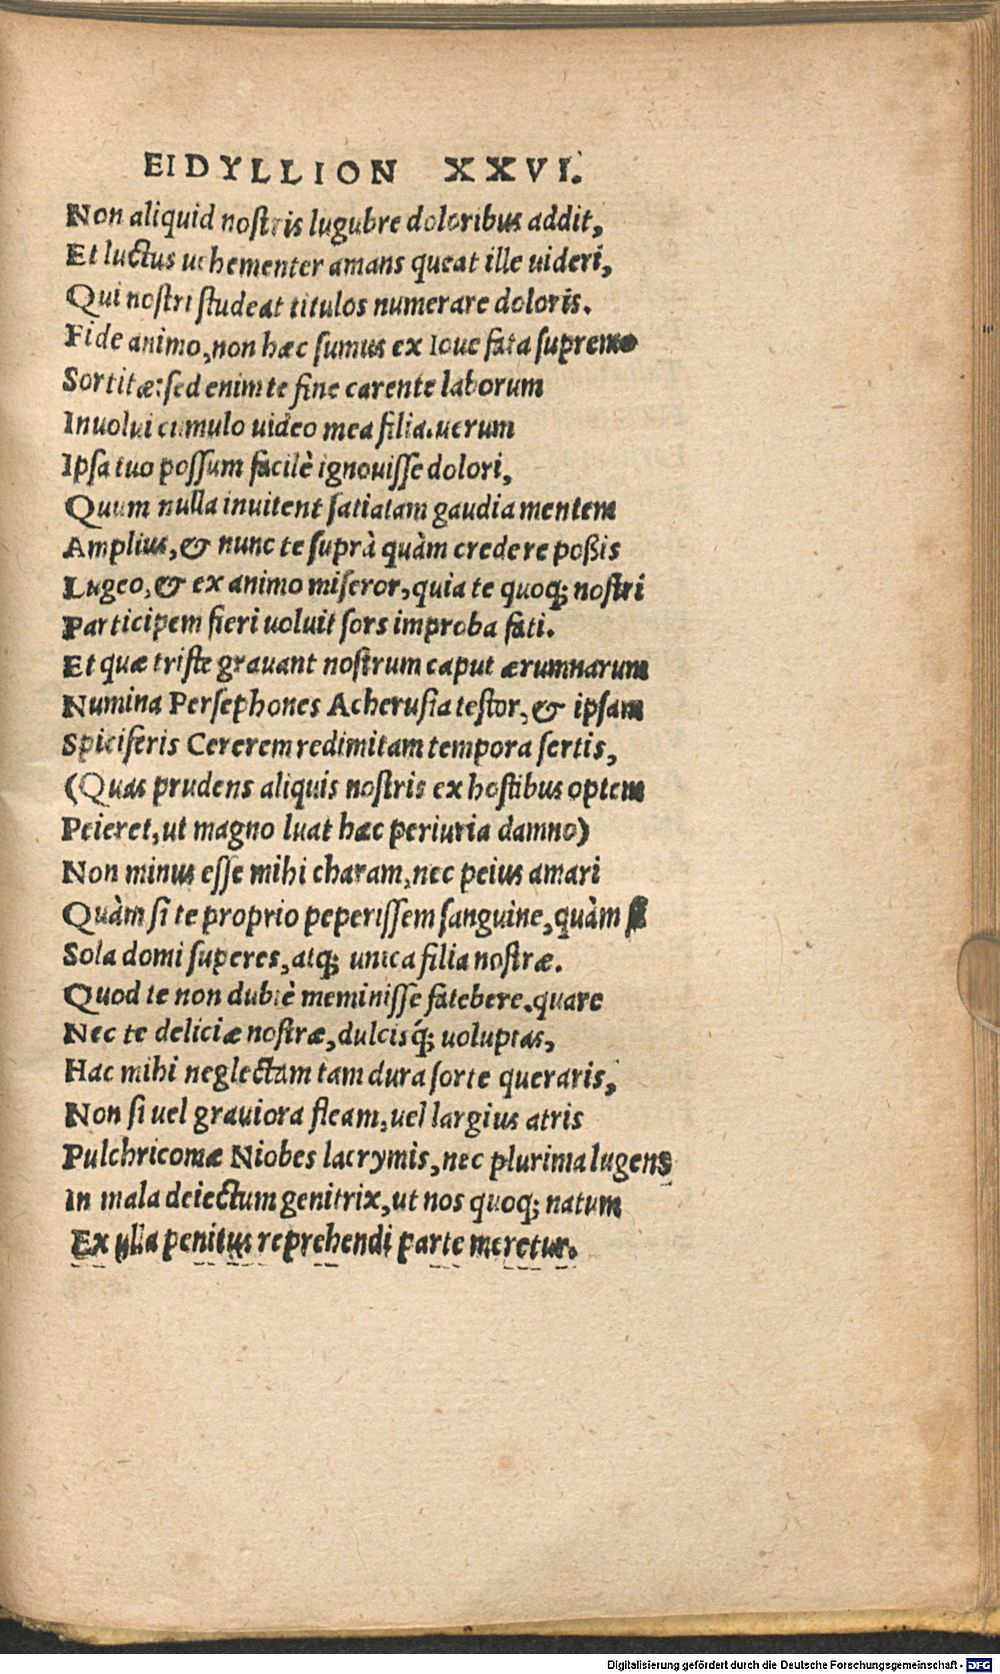 EIDYLLION XXVI.
Non aliquid nostris lugubre doloribus addit,
Et luctus uehementer amans queat ille uideri,
Qui nostri studeat titulos numerare doloris.
Fide animo, non hæc sumus ex Ioue fata supremo
Sortitæ: sed enim te fine carente laborum
Inuolui cumulo uideo mea filia. uerum
Ipsa tuo possum facilè ignouisse dolori,
Quum nulla inuitent satiatam gaudia mentem
Amplius, & nunc te suprà quàm credere poßis
Lugeo, & ex animo miseror, quia te quoq; nostri
Participem fieri uoluit sors improba fati.
Et quæ triste grauant nostrum caput ærumnarum
Numina Persephones Acherusia testor, & ipsam
Spiciferis Cererem redimitam tempora sertis,
(Quas prudens aliquis nostris ex hostibus optem
Peieret, ut magno luat hæc periuria damno)
Non minus esse mihi charam, nec peius amari
Quàm si te proprio peperissem sanguine, quàm
Sola domi superes, atq; unica filia nostræ.
Quod te non dubiè meminisse fatebere. quare
Nec te deliciæ nostræ, dulcisq́; uoluptas,
Hac mihi neglectam tam dura sorte queraris,
Non si uel grauiora fleam, uel largius atris
Pulchricomæ Niobes lacrymis, nec plurima lugens
In mala deiectum genitrix, ut nos quoq; natum
Ex ulla penitus reprehendi parte meretur.
Digitalisierung gefördert durch die Deutsche Forschungsgemeinschaft - DFG